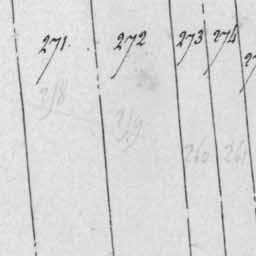 271. 272 273 274
258
259
260 261